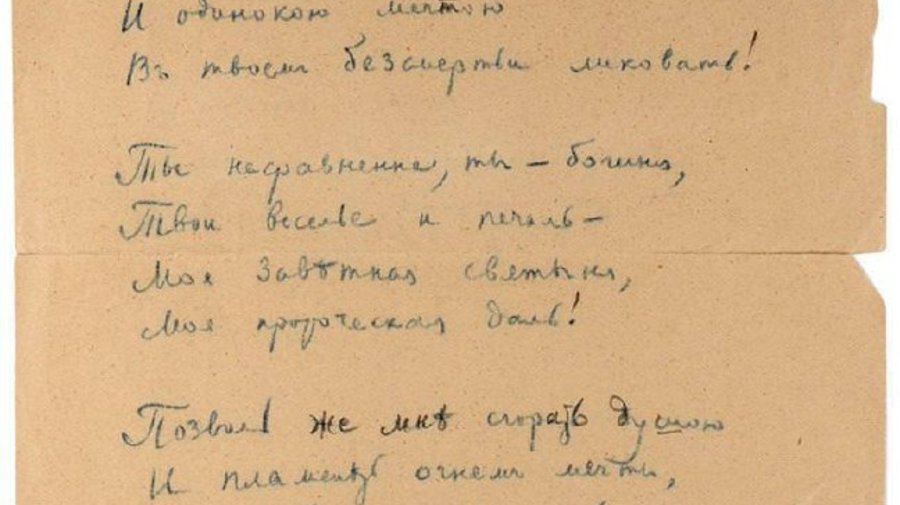 И одинокою мечтою
Въ твоемъ безсмертьи ликовать!
Ты несравненна, ты — богиня,
Твои веселье и печаль —
Моя завѣтная святыня,
Моя пророческая даль!
Позволь же мнѣ сгорать душою
И пламенѣть огнемъ мечты,